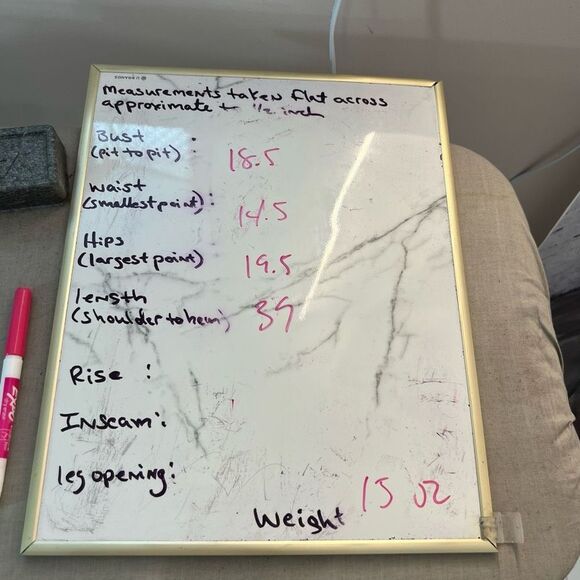 measurements taken flat across
approximate + 1/2 inch
Bust :
(pit to pit) 18.5
waist :
(smallest point) 14.5
Hips
(largest point) 19.5
length
(shoulder to hem) 39
Rise :
Inseam :
leg opening :
Weight 15 oz
EXPO